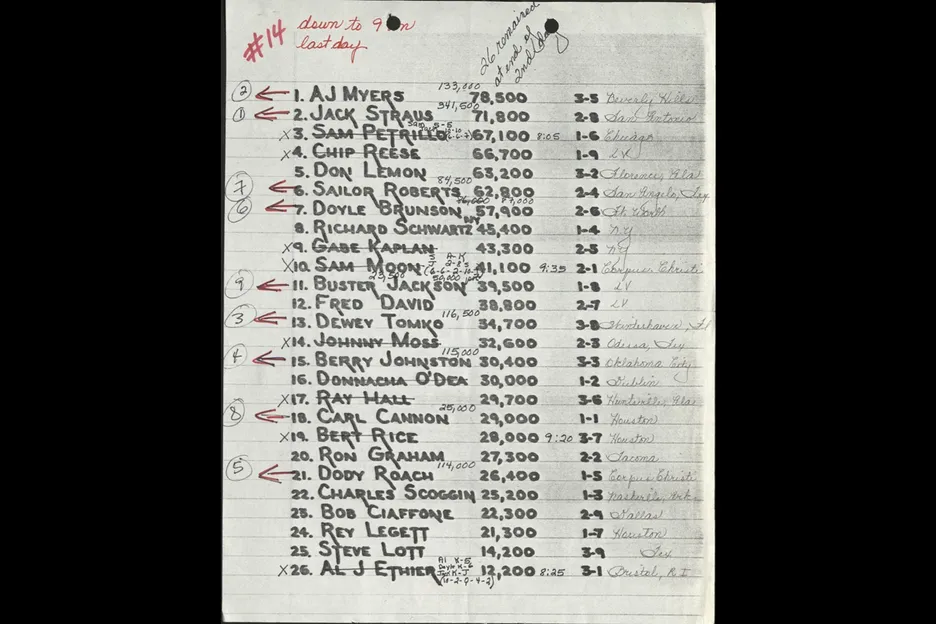 #14
down to 9 on
last day
26 remained
at end of
2nd day
② ← 1. AJ MYERS 133,000 78,500 3-5 Beverly Hills
① ← 2. JACK STRAUS 341,500 71,800 2-8 San Antonio
X 3. SAM PETRILLO 67,100 8:05 1-6 Chicago
X 4. CHIP REESE 66,700 1-9 LV
5. DON LEMON 63,200 3-2 Florence, Ala
⑦ ← 6. SAILOR ROBERTS 84,500 62,800 2-4 San Angelo, Tex
⑥ ← 7. DOYLE BRUNSON 57,900 2-6 Ft Worth
8. RICHARD SCHWARTZ NY 45,400 1-4 NY
X 9. GABE KAPLAN 43,300 2-5 NY
X 10. SAM MOON 41,100 9:35 2-1 Corpus Christi
⑨ ← 11. BUSTER JACKSON 39,500 1-8 LV
12. FRED DAVID 38,800 2-7 LV
③ ← 13. DEWEY TOMKO 116,500 34,700 3-8 Winterhaven, Fl
X 14. JOHNNY MOSS 32,600 2-3 Odessa, Tex
④ ← 15. BERRY JOHNSTON 115,000 30,400 3-3 Oklahoma City
16. DONNACHA O'DEA 30,000 1-2 Dublin
X 17. RAY HALL 29,700 3-6 Huntsville, Ala
⑧ ← 18. CARL CANNON 25,000 29,000 1-1 Houston
X 19. BERT RICE 28,000 9:20 3-7 Houston
20. RON GRAHAM 27,300 2-2 Tacoma
⑤ ← 21. DODY ROACH 114,000 26,400 1-5 Corpus Christi
22. CHARLES SCOGGIN 25,200 1-3 Ark
23. BOB CIAFFONE 22,300 2-9 Dallas
24. REY LEGETT 21,300 1-7 Houston
25. STEVE LOTT 14,200 3-9 Tex
X 26. AL J ETHIER 12,200 8:25 3-1 Bristol, R I